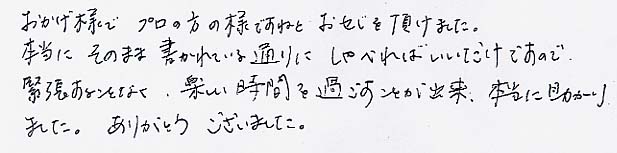 おかげ様で プロの方の様ですねと おせじを頂けました。
本当に そのまま書かれている通りに しゃべればいいだけですので、
緊張することなく、楽しい時間を過ごすことが出来、本当に助かり
ました。 ありがとう ございました。